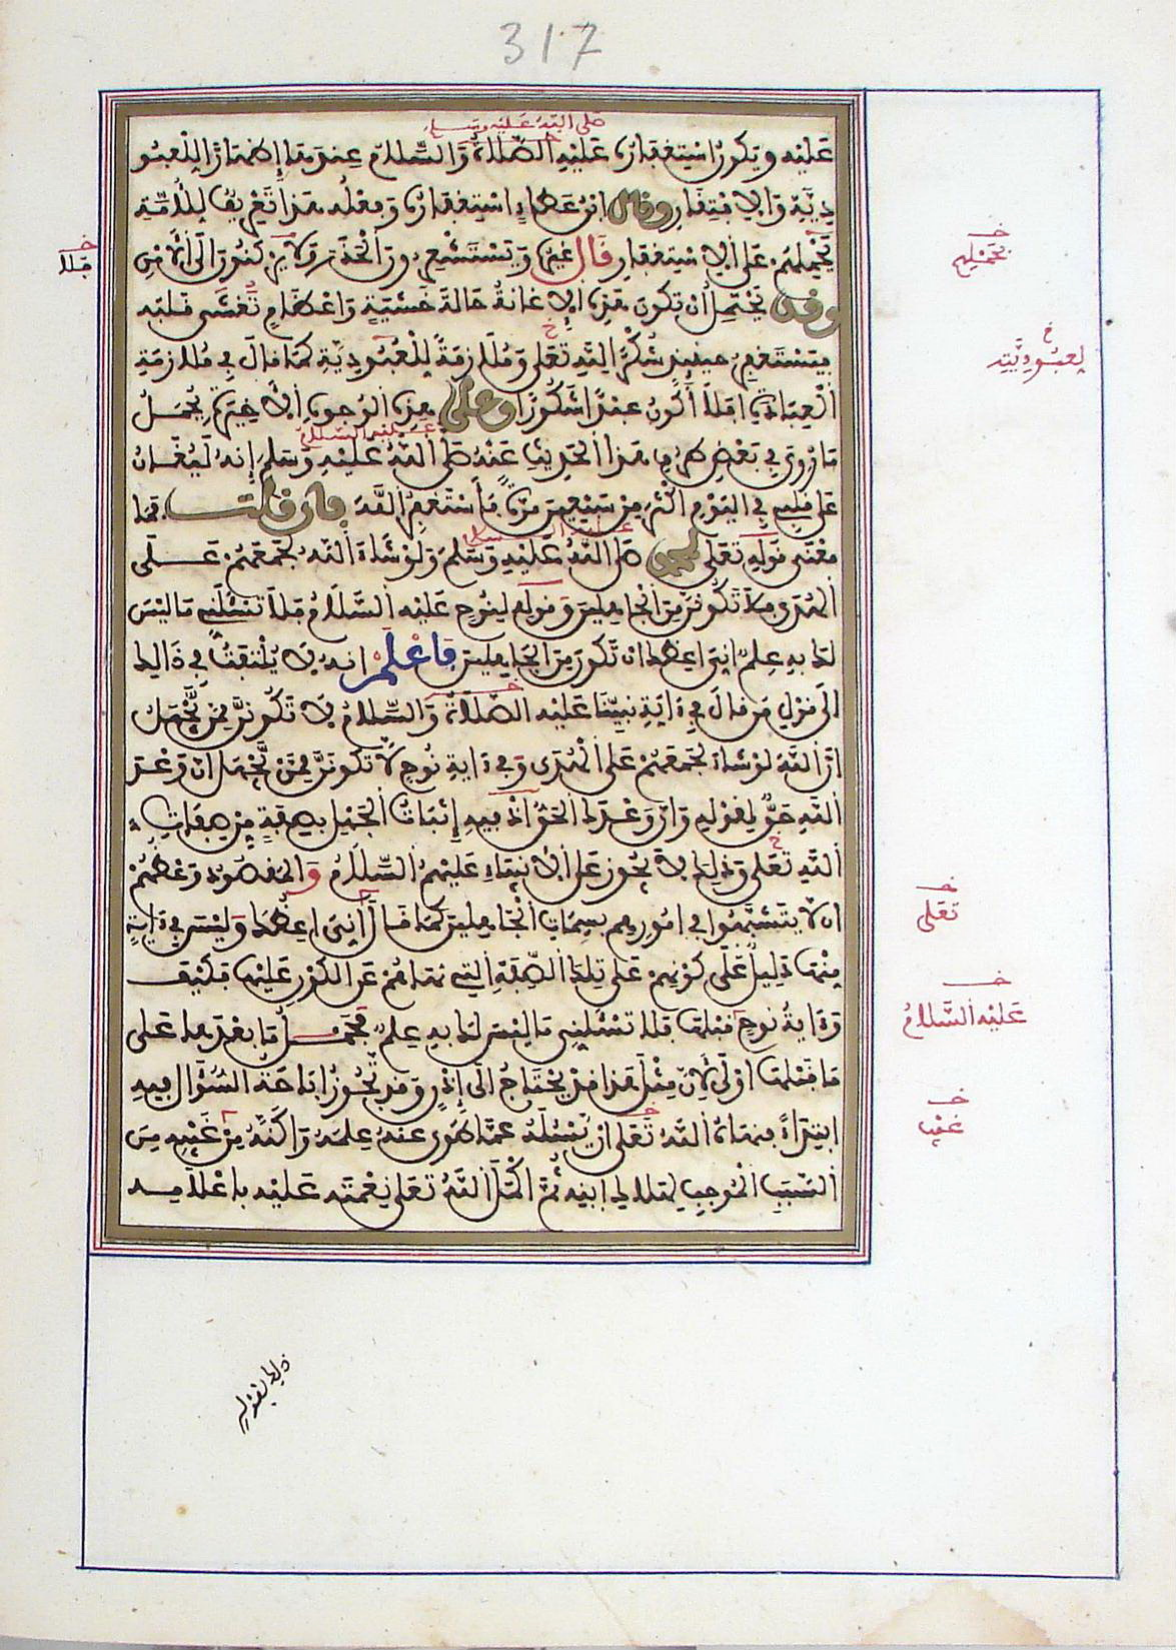 317
صلى الله عليه وسلم
عليه ويكون استغفاره عليه الصلاة والسلام عندها إظهارا للعبو
دية والافتقار وقال ابن عطاء استغفاره وفعله هذا تعريف للأمة
يحملهم على الاستغفار قال غيره ويستشعرون الحذر ولا يركنون إلى الأمن
وقد يحتمل أن تكون هذه الإغانة حالة خشية وإعظام تغشى قلبه
فيستغفر حينئذ شكرا لله تعلى وملازمة للعبودية كما قال في ملازمة
العبادة افلا أكون عبدا شكورا وعلى هذه الوجوه الأخيرة يحمل
عليه السلام
ما روي في بعض طرق هذا الحديث عنه صلى الله عليه وسلم إنه ليغان
على قلبي في اليوم أكثر من سبعين مرة فأستغفر الله فإن قلت فما
عليه السلام
معنى قوله تعلى لمحمد صلى الله عليه وسلم ولو شاء الله لجمعهم على
الهدى فلا تكونن من الجاهلين وقوله لنوح عليه السلام فلا تسئلني ما ليس
لك به علم اني اعظك ان تكون من الجاهلين فاعلم انه لا يلتفت في ذالك
الى قول من قال في ءاية نبينا عليه الصلاة والسلام لا تكونن ممن يجهل
ان الله لو شاء لجمعهم على الهدى وفي ءاية نوح لا تكونن ممن يجهل ان وعد
الله حق لقوله وان وعدك الحق اذ فيه إثبات الجهل بصفة من صفات
الله تعلى وذلك لا يجوز على الانبياء عليهم السلام والمقصود وعظهم
ان لا يتشبهوا في امورهم بسمات الجاهلين كما قال اني اعظك وليس في ءاية
منها دليل على كونهم على تلك الصفة التي نهاهم عن الكون عليها فكيف
وءاية نوح قبلها فلا تسئلني ما ليس لك به علم فحمل ما بعدها على
ما قبلها اولى لان مثل هذا قد يحتاج الى إذن وقد تجوز اباحة السؤال فيه
ابتداء فنهاه الله تعلى ان يسئله عما طوى عنه علمه واكنه من غيبه من
السبب الموجب لهلاك ابنه ثم اكمل الله تعلى نعمته عليه باعلامه
فلا
بحملهم
لعبوديته
تعلى
عليه السلام
غيب
ذلك بقوله